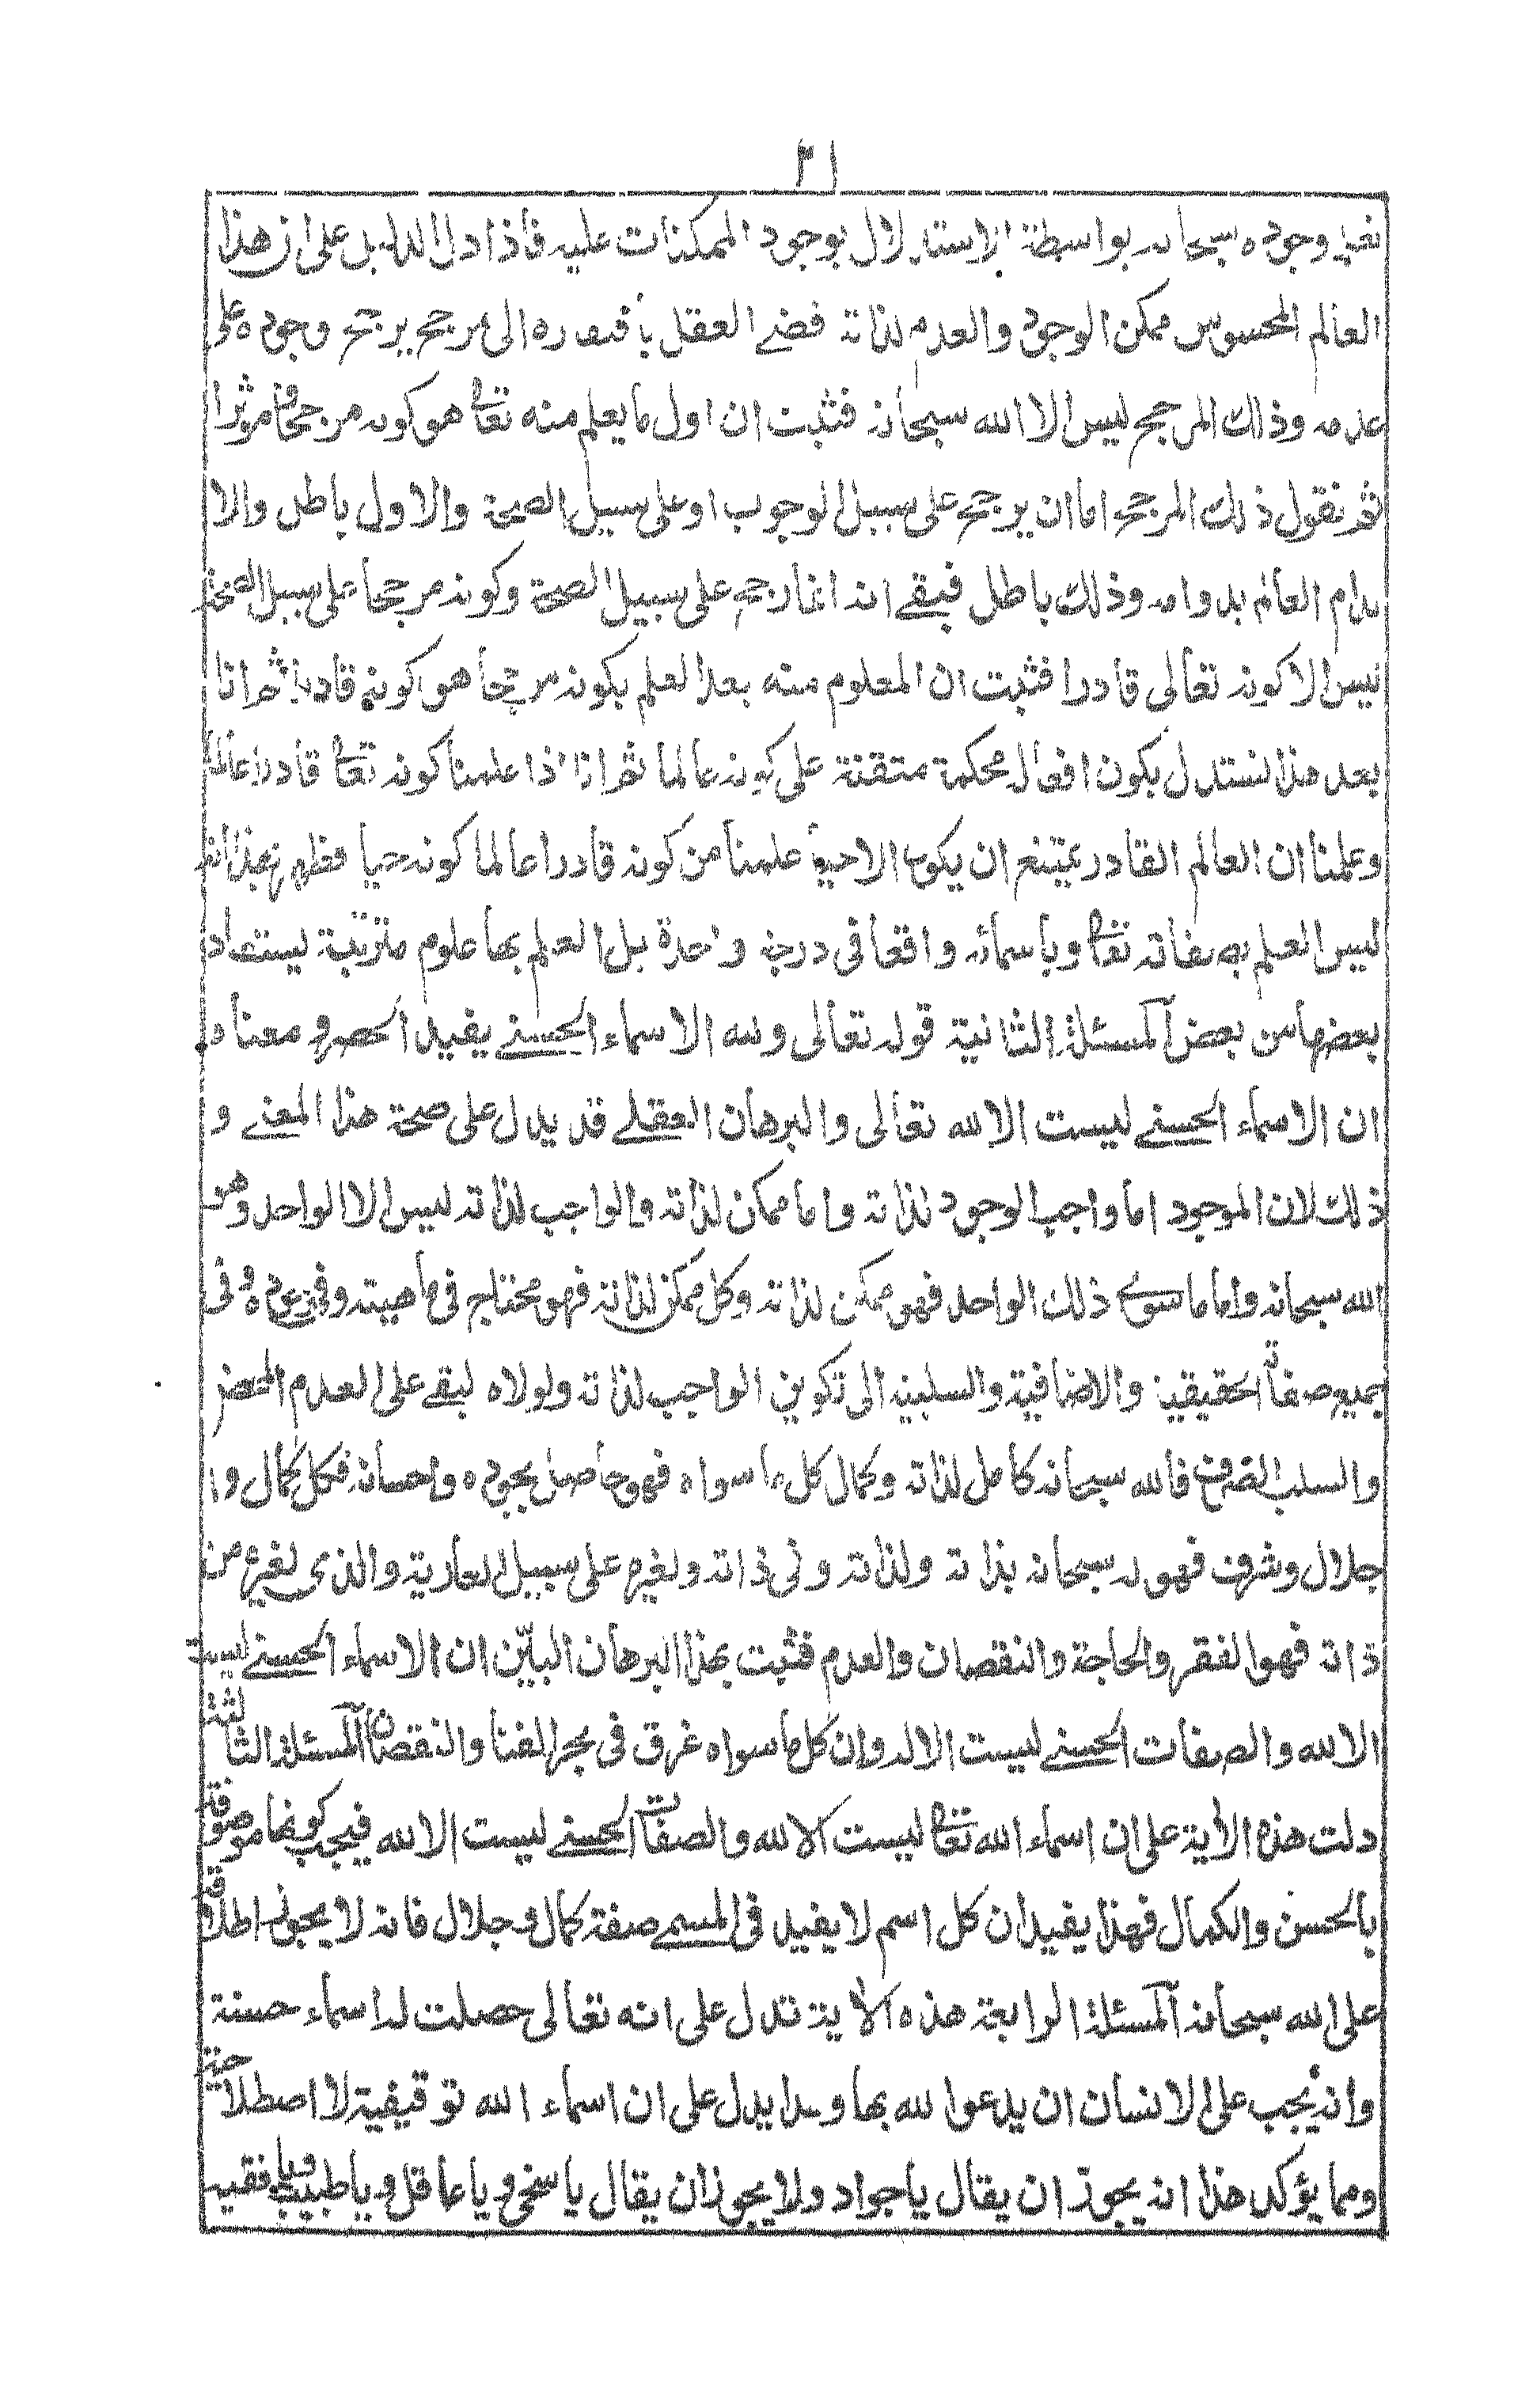 ٢١
نفيد وجوده سبحانه بواسطة الاستدلال بوجود الممكنات عليه فاذا دل الدليل على ان هذا
العالم المحسوس ممكن الوجود والعدم لذاته قضى العقل بافتقاره الى مرجح يرجح وجوده على
عدمه وذلك المرجح ليس الا الله سبحانه فثبت ان اول ما يعلم منه تعا هو كونه مرجحا مؤثرا
ثم نقول ذلك المرجح اما ان يرجح على سبيل الوجوب او على سبيل الصحة والاول باطل والا
لدام العالم بدوامه وذلك باطل فبقى انه انما رجح على سبيل الصحة وكونه مرجحا على سبيل الصحة
ليس الا كونه تعالى قادرا فثبت ان المعلوم منه بعد العلم بكونه مرجحا هو كونه قادرا ثم انا
بعد هذا نستدل بكون افعاله محكمة متقنة على كونه عالما ثم انا اذا علمنا كونه تعا قادرا عالما
وعلمنا ان العالم القادر يمتنع ان يكون الا حيا علمنا من كونه قادرا عالما كونه حيا فظهر بهذا انه
ليس العلم بصفاته تعا وباسمائه واقعا فى درجة واحدة بل العلم بها علوم مترتبة يستفاد
بعضها من بعض المسئلة الثانية قوله تعالى ولله الاسماء الحسنى يفيد الحصر ومعناه
ان الاسماء الحسنى ليست الا لله تعالى والبرهان العقلى قد يدل على صحة هذا المعنى و
ذلك لان الموجود اما واجب الوجود لذاته واما ممكن لذاته والواجب لذاته ليس الا الواحد وهو
الله سبحانه واما ما سوى ذلك الواحد فهو ممكن لذاته وكل ممكن لذاته فهو محتاج فى ماهيته وفى وجوده وفى
جميع صفاته الحقيقية والاضافية والسلبية الى تكوين الواجب لذاته ولولاه لبقى على العدم المحض
والسلب الصرف فالله سبحانه كامل لذاته وكمال كل ما سواه فهو حاصل بجوده واحسانه فكل كمال و
جلال وشرف فهو له سبحانه بذاته ولذاته وفى ذاته ولغيره على سبيل العارية والذى لغيره من
ذاته فهو الفقر والحاجة والنقصان والعدم فثبت بهذا البرهان البيّن ان الاسماء الحسنى ليست
الا لله والصفات الحسنى ليست الا له وان كل ما سواه غرق فى بحر الفنا والنقصان المسئلة الثالثة
دلت هذه الاية على ان اسماء الله تعا ليست الا لله والصفات الحسنى ليست الا لله فيجب كونها موصوفة
بالحسن والكمال فهذا يفيد ان كل اسم لا يفيد فى المسمى صفة كمال وجلال فانه لا يجوز اطلاقه
على الله سبحانه المسئلة الرابعة هذه الاية تدل على انه تعالى حصلت له اسماء حسنة
وانه يجب على الانسان ان يدعوا لله بها وهذا يدل على ان اسماء الله توقيفية لا اصطلاحية
ومما يؤكد هذا انه يجوز ان يقال يا جواد ولا يجوز ان يقال يا سخى ويا عاقل ويا طبيب ويا فقيه